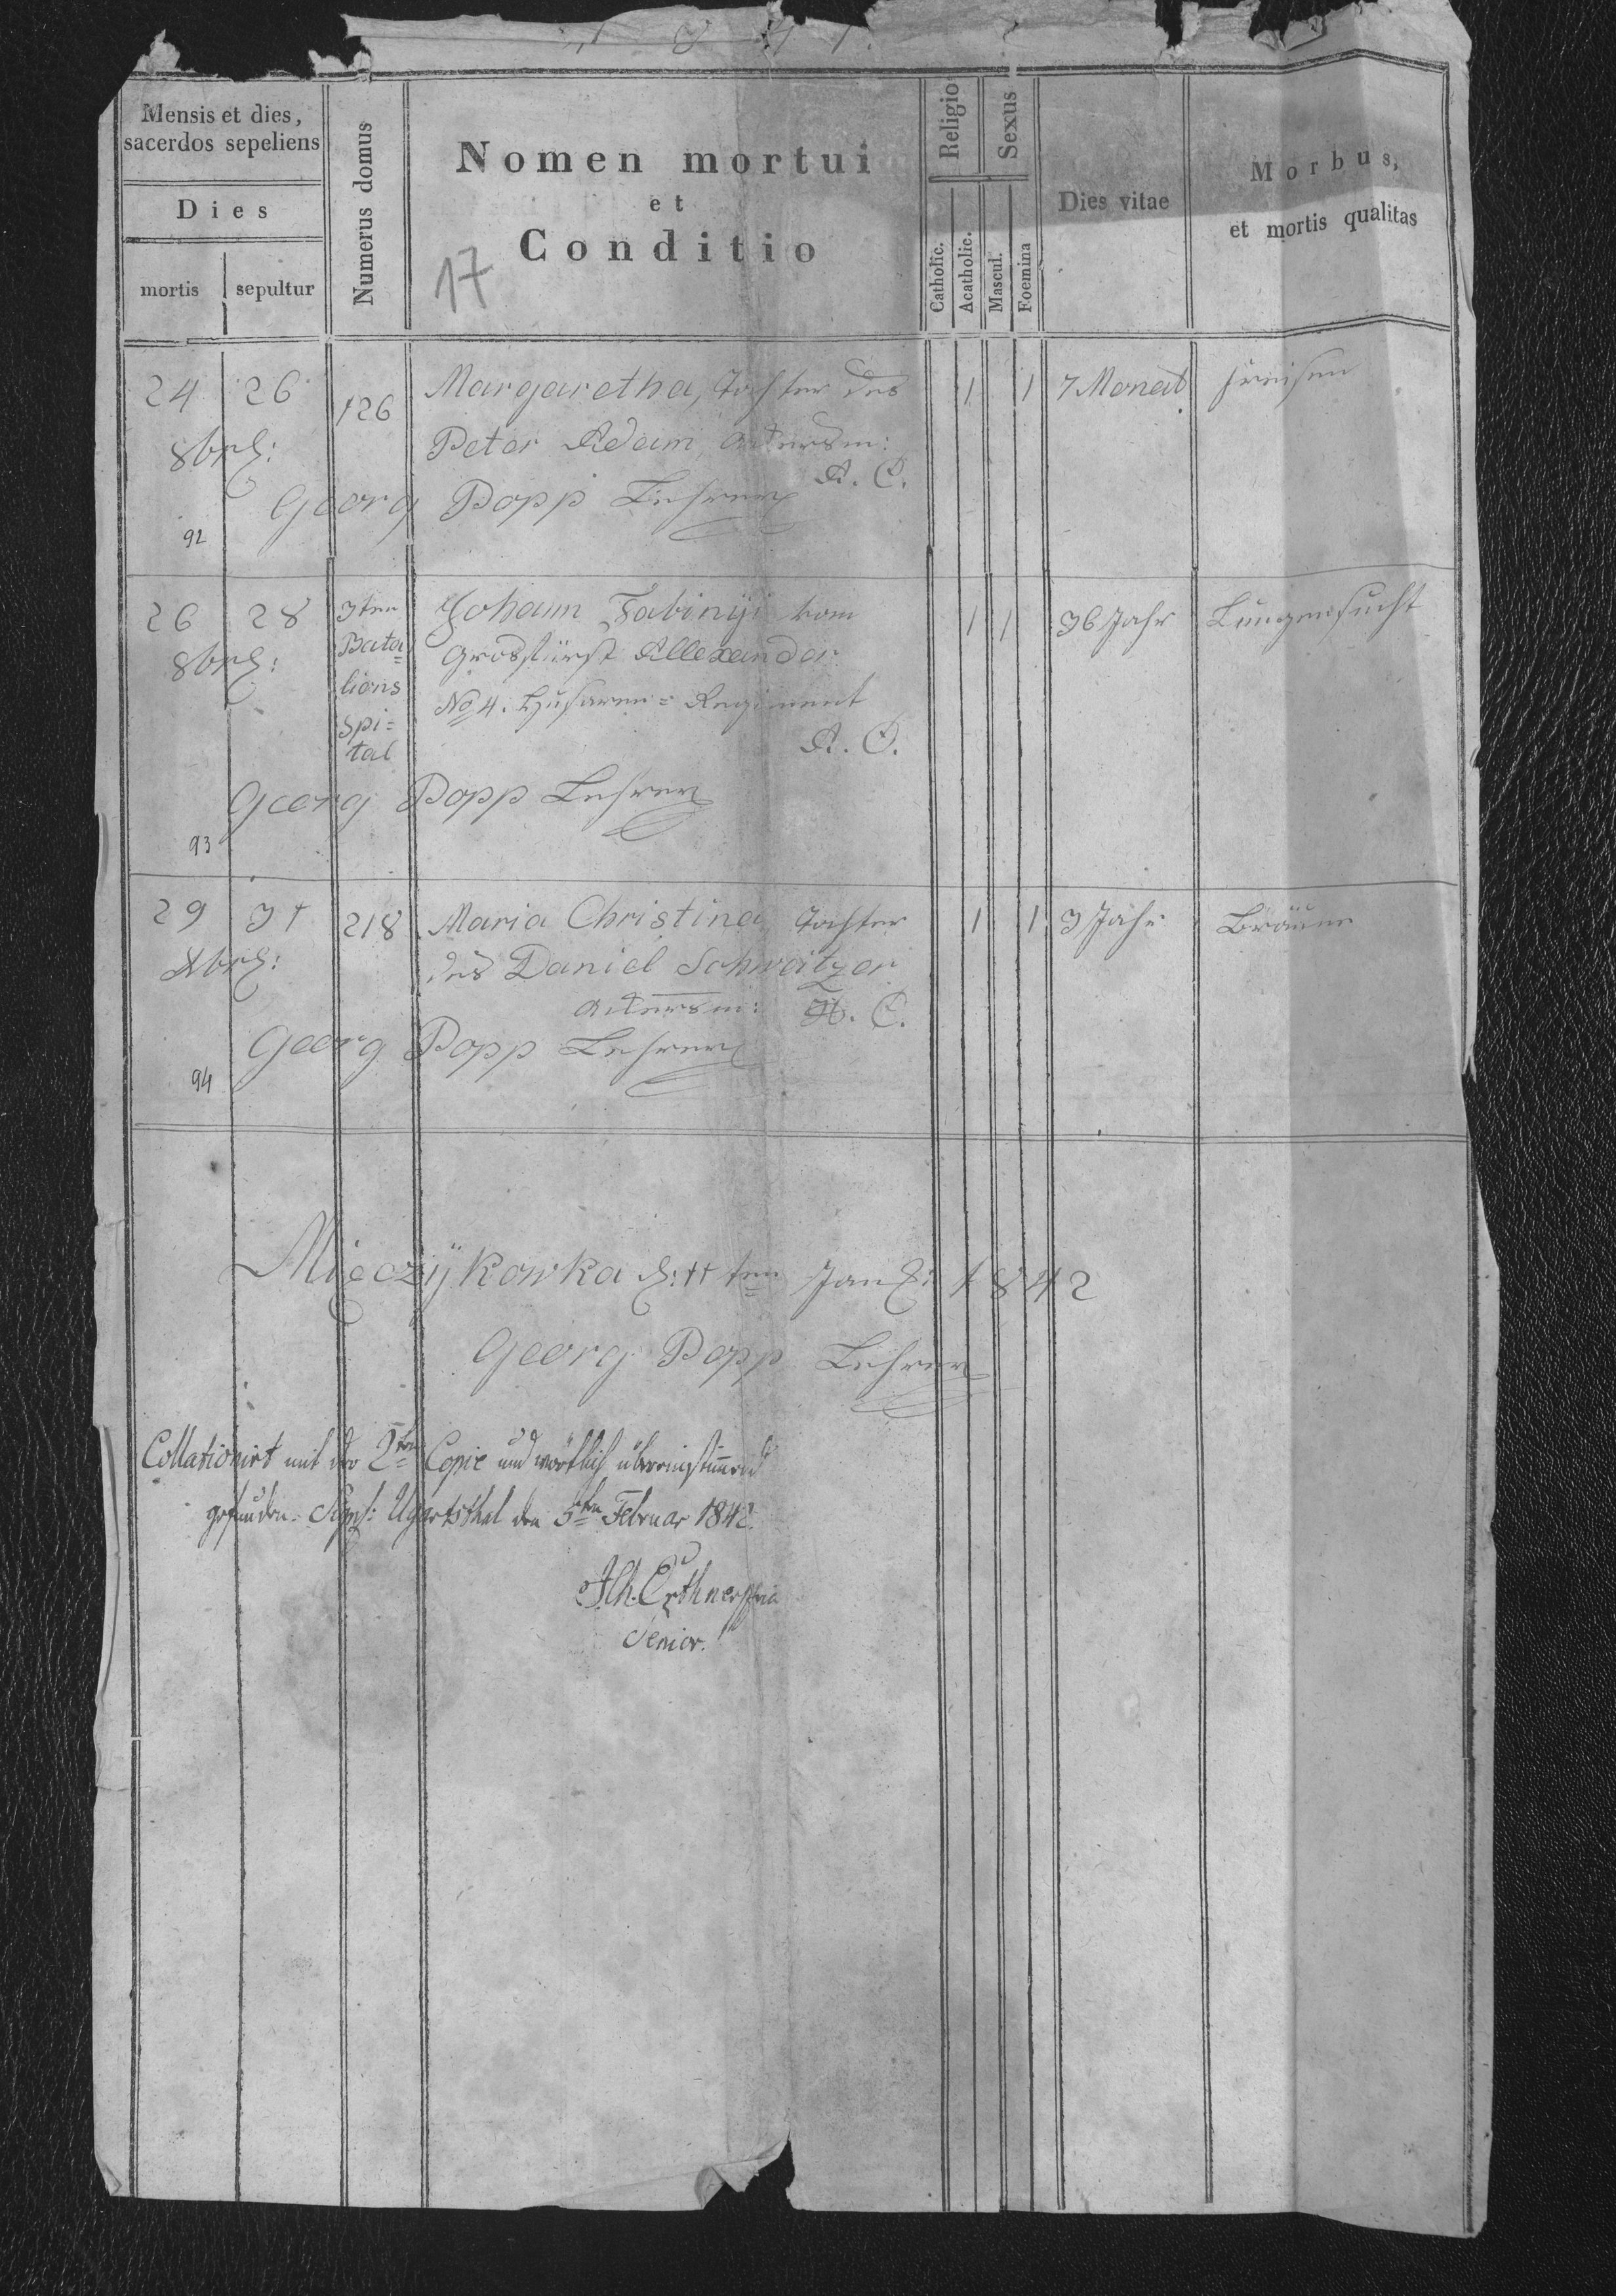 Mensis et dies,
sacerdos sepeliens
Dies
mortis sepultur
Numerus domus
Nomen mortui
et
Conditio
17
Religio
Catholic.
Acatholic.
Sexus
Mascul.
Foemina
Dies vitae
Morbus,
et mortis qualitas
24 26 126 Margaretha, Tochter des 1 1 7 Monat Freisen
8brſ: Peter Adam,
A. C.
Georg Popp Lehrer
92
26 28 3ten Johann Fabinyi vom 1 1 36 Jahr Lungensucht
8brſ: Bata= Grosfürst Allexander
lions No 4. Husaren= Regiment
Spi=
tal A. C.
Georg Popp Lehrer
93
29 31 218 Maria Christina Tochter 1 1 3 Jahr Bräune
Xbrſ: des Daniel Schweitzer
A. C.
Georg Popp Lehrer
94
Mieczÿkowka d: 11ten Jan: 1842
Georg Popp Lehrer
Collationirt mit der 2ten Copie und wörtlich übereinstimmend
gefunden. Ugartsthal den 5ten Februar 1842.
Senior.